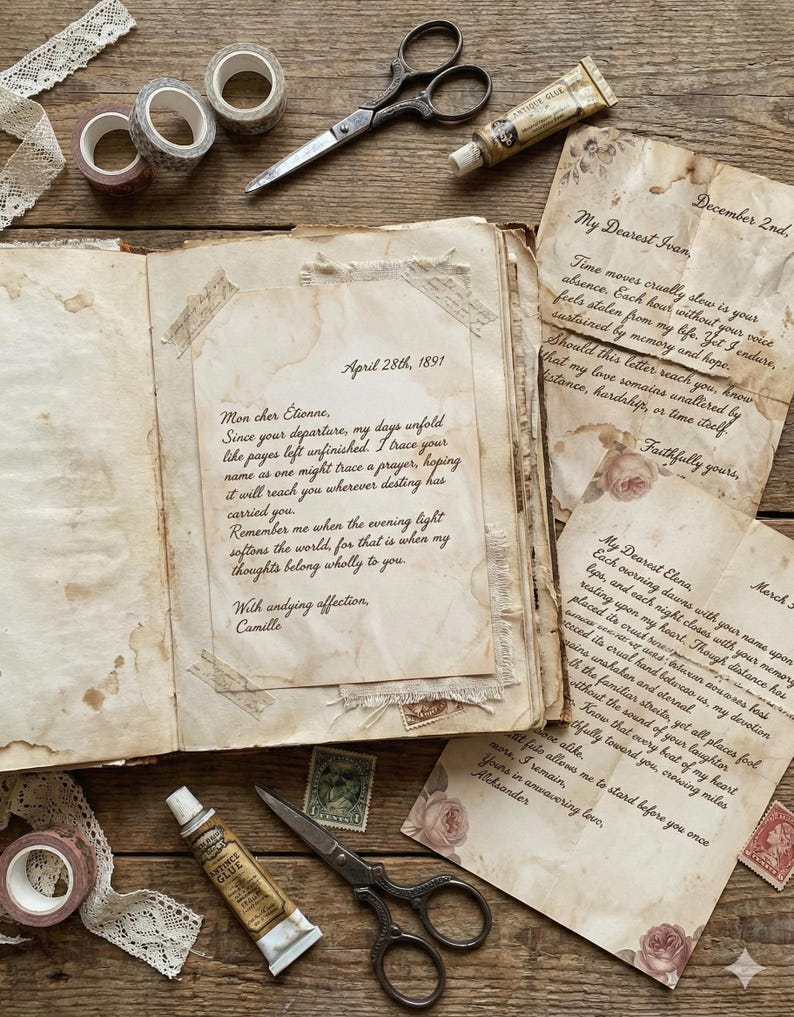 ANTIQUE GLUE
December 2nd,
My Dearest Ivan,
Time moves cruelly slew is your
absence. Each hour without your voice
feels stolen from my life. Yet I endure,
surtsined by memory and hope.
Should this letter reach you, know
that my love somains unallered by
distance, hardship, or time itself.
Faithfully yours,
April 28th, 1891
Mon cher Étionne,
Since your departure, my days unfold
like payes left unfinished. I trace your
name as one might trace a prayer, hoping
it will reach you wherever desting has
carried you.
Remember me when the evening light
softons the world, for that is when my
thoughts belong wholly to you.
With andying affection,
Camille
Merch 3
My Dearest Elena,
Each overning dawns with your name upon
lips, and each night closes with your memory
resting upon my heart. Though distance has
placed its
its crual hand between us, my devotion
unshaken and oternal.
the familiar streits, yet all places fool
without the sound of your laughter.
Know that every boat of my heart
toward you, croising miles
alike.
fito allows me to stard before you once
more, I remain,
Yours in anwavering love,
Aleksander
CENTS
ANTINCE
GLUE